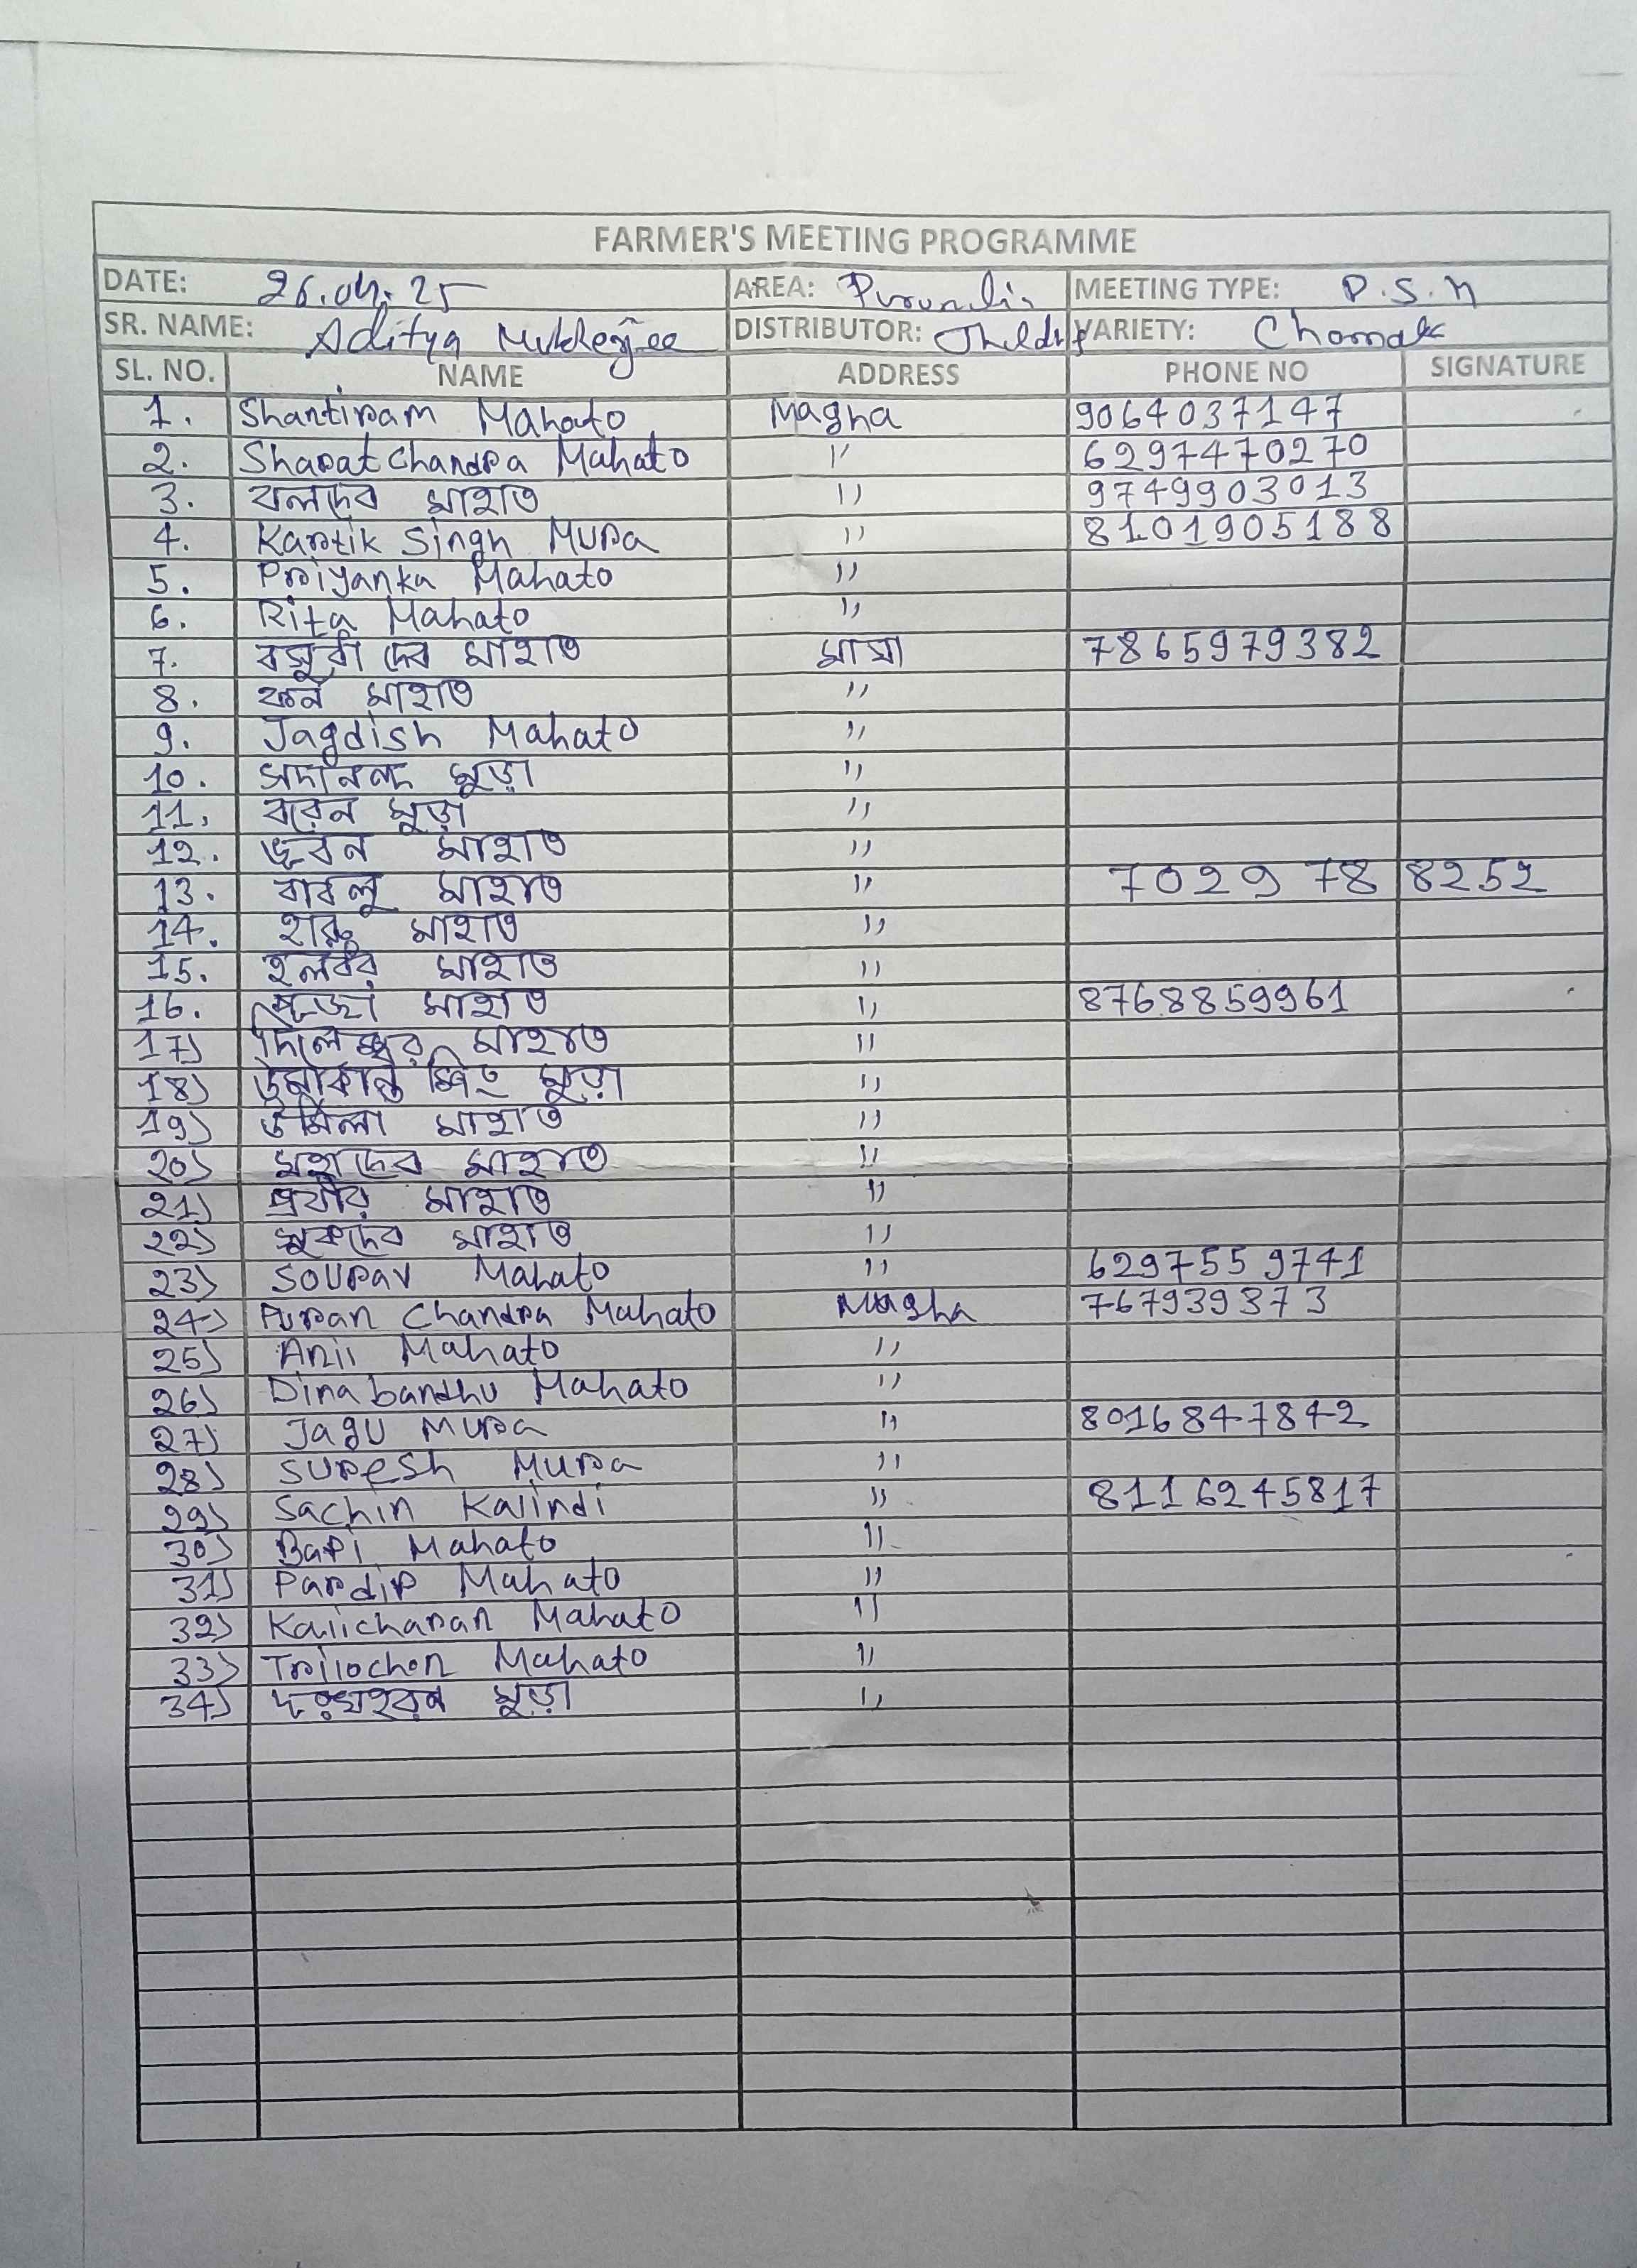 FARMER'S MEETING PROGRAMME
DATE: 26.04.25 AREA: Purunlia MEETING TYPE: P.S.M
SR. NAME: Aditya Mukherjee DISTRIBUTOR: VARIETY: Chamak
SL. NO. NAME ADDRESS PHONE NO SIGNATURE
1. Shantiram Mahato Magha 9064037147
2. Sharat Chandra Mahato " 6297470270
3. বলদেব মাহাত " 9749903013
4. Kartik Singh Mura " 8101905188
5. Priyanka Mahato "
6. Rita Mahato "
7. দেব মাহাত মাঘা 7865979382
8. মাহাত "
9. Jagdish Mahato "
10. সদানন্দ মুড়া "
11. বরেন মুড়া "
12. ভূবন মাহাত "
13. বাবলু মাহাত " 7029 78 8252
14. হারু মাহাত "
15. হলধর মাহাত "
16. মাহাত " 8768859961
17) মাহাত "
18) উমাকান্ত সিং মুড়া "
19) উর্মিলা মাহাত "
20) মহাদেব মাহাত "
21) প্রবীর মাহাত "
22) সুকদেব মাহাত "
23) Sourav Mahato " 6297559741
24) Puran Chandra Mahato Magha 767939373
25) Anil Mahato "
26) Dinabandhu Mahato "
27) Jagu Mura " 8016847842
28) Suresh Mura "
29) Sachin Kalindi " 8116245817
30) Bapi Mahato "
31) Pardip Mahato "
32) Kalicharan Mahato "
33) Trilochon Mahato "
34) মুড়া "